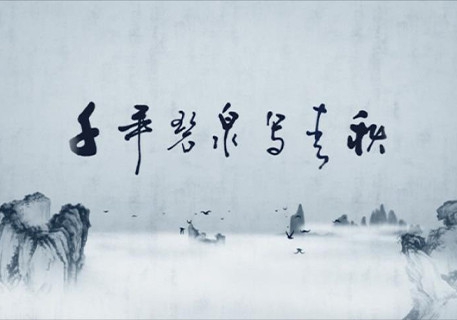 千年碧泉写春秋